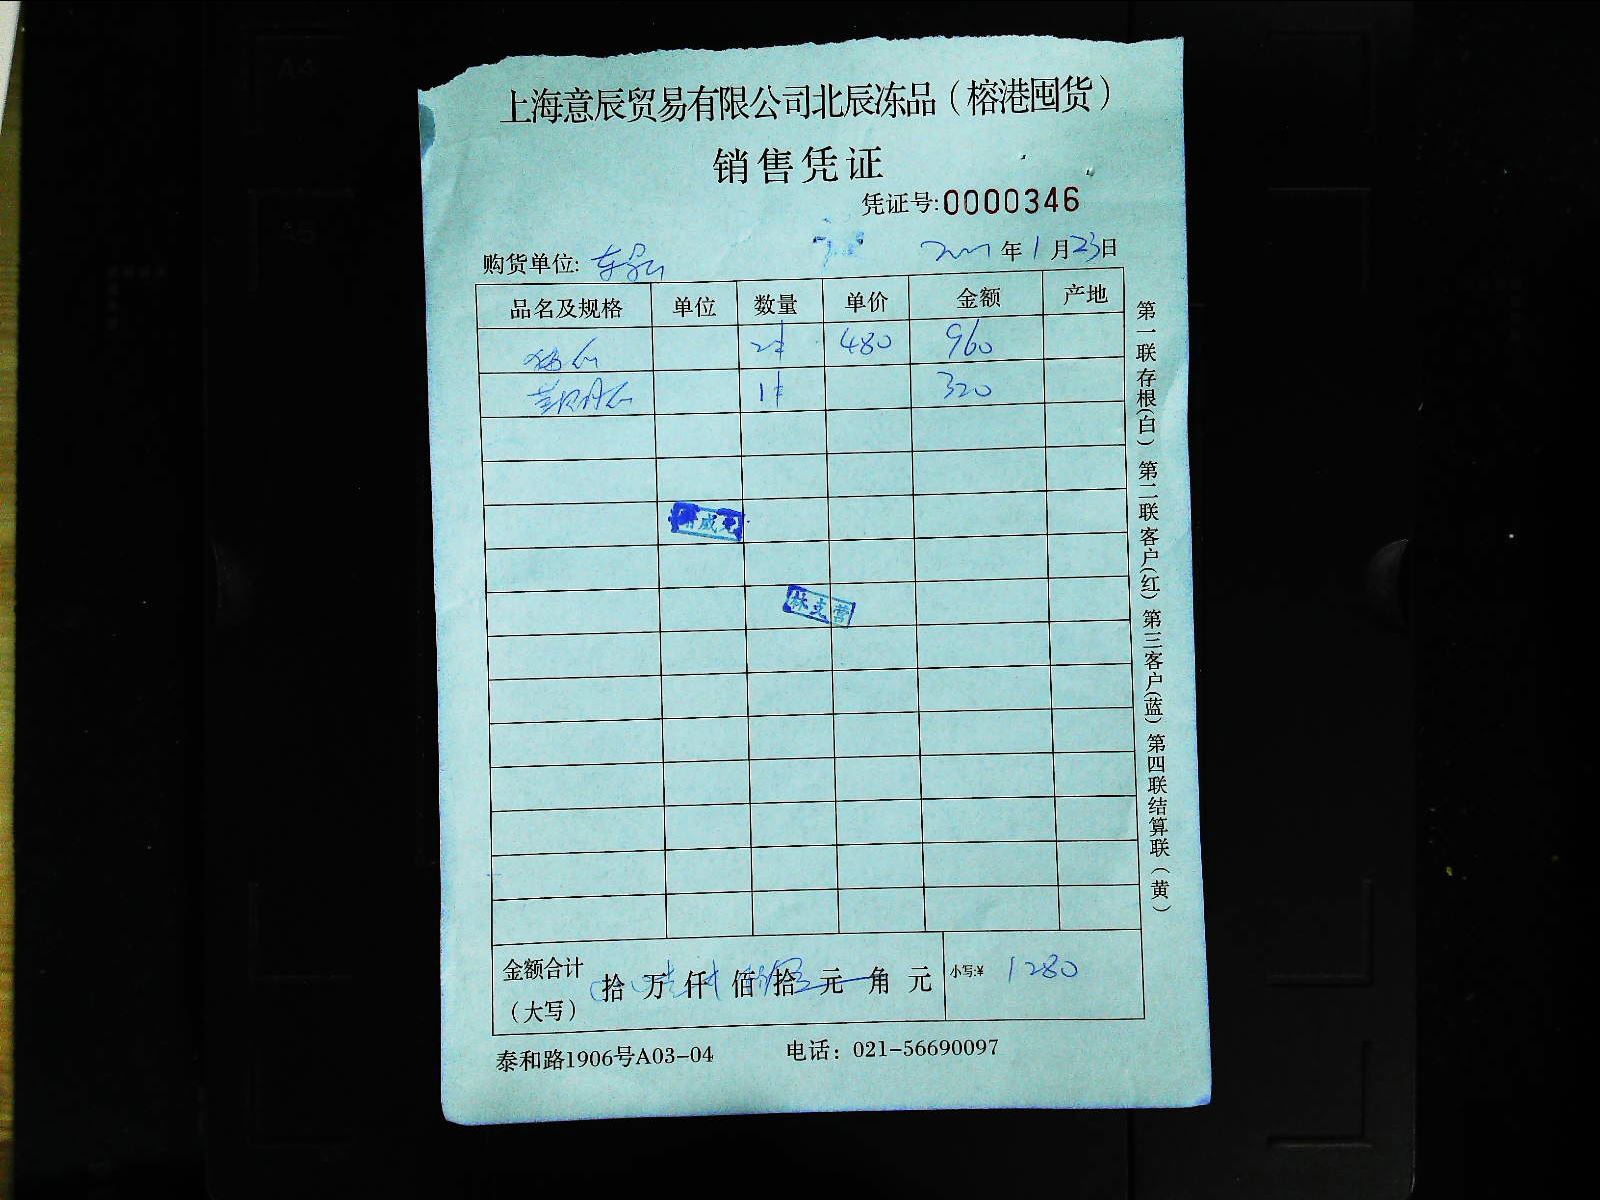 上海意辰贸易有限公司北辰冻品（榕港囤货）
销售凭证
凭证号:0000346
购货单位: 年1月23日
品名及规格 单位 数量 单价 金额 产地
2件 480 960
1件 320
林克营
金额合计（大写） 拾 万 仟 佰 拾 元 角 元 小写:¥ 1280
泰和路1906号A03-04 电话：021-56690097
第一联存根(白) 第二联客户(红) 第三客户(蓝) 第四联结算联(黄)
A4
A5